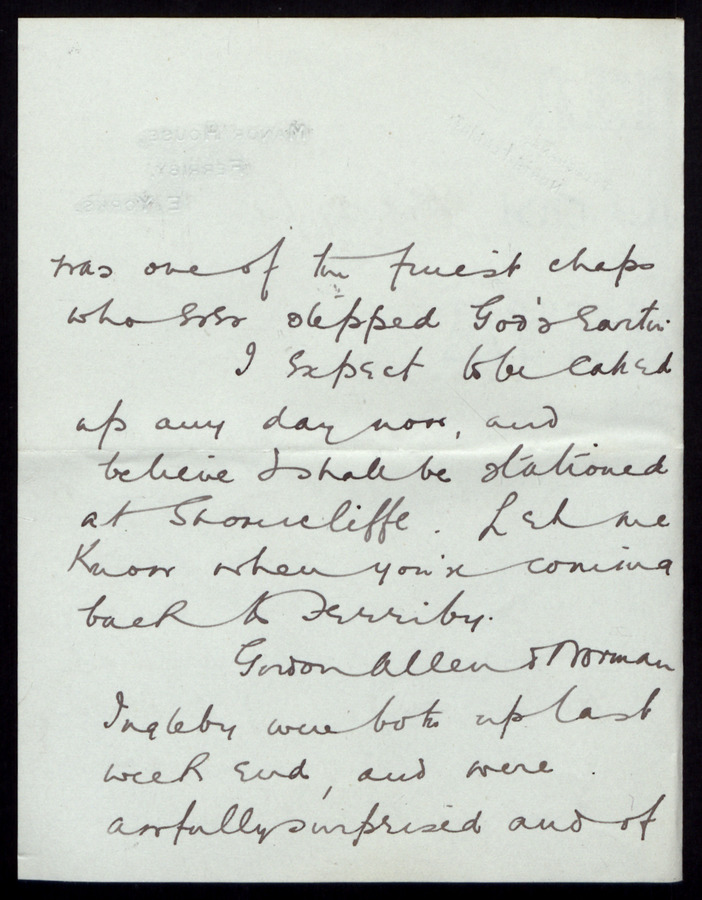 was one of the finest chaps
who ever stepped God's Earth.
I expect to be called
up any day now, and
believe I shall be stationed
at Shorncliffe. Let me
Know when you're coming
back to Ferriby.
Gordon Allen & Norman
Ingleby were both up last
week end, and were
awfully surprised and of